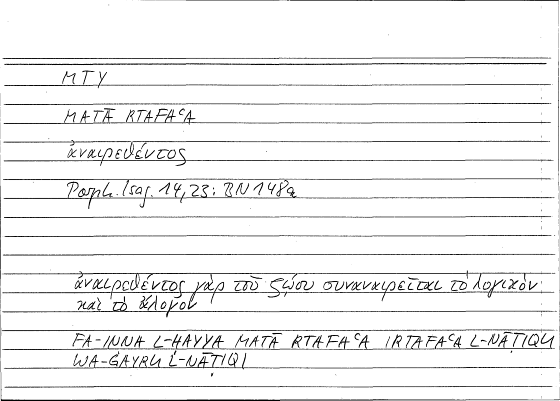 MTY
MATĀ RTAFAʿA
ἀναιρεθέντος
Porph. Isag. 14,23: BN 148a
ἀναιρεθέντος γὰρ τοῦ ζῴου συναναιρεῖται τὸ λογικὸν
καὶ τὸ ἄλογον
FA-INNA L-ḤAYYA MATĀ RTAFAʿA IRTAFAʿA L-NĀṬIQU
WA-ĠAYRU L-NĀṬIQI